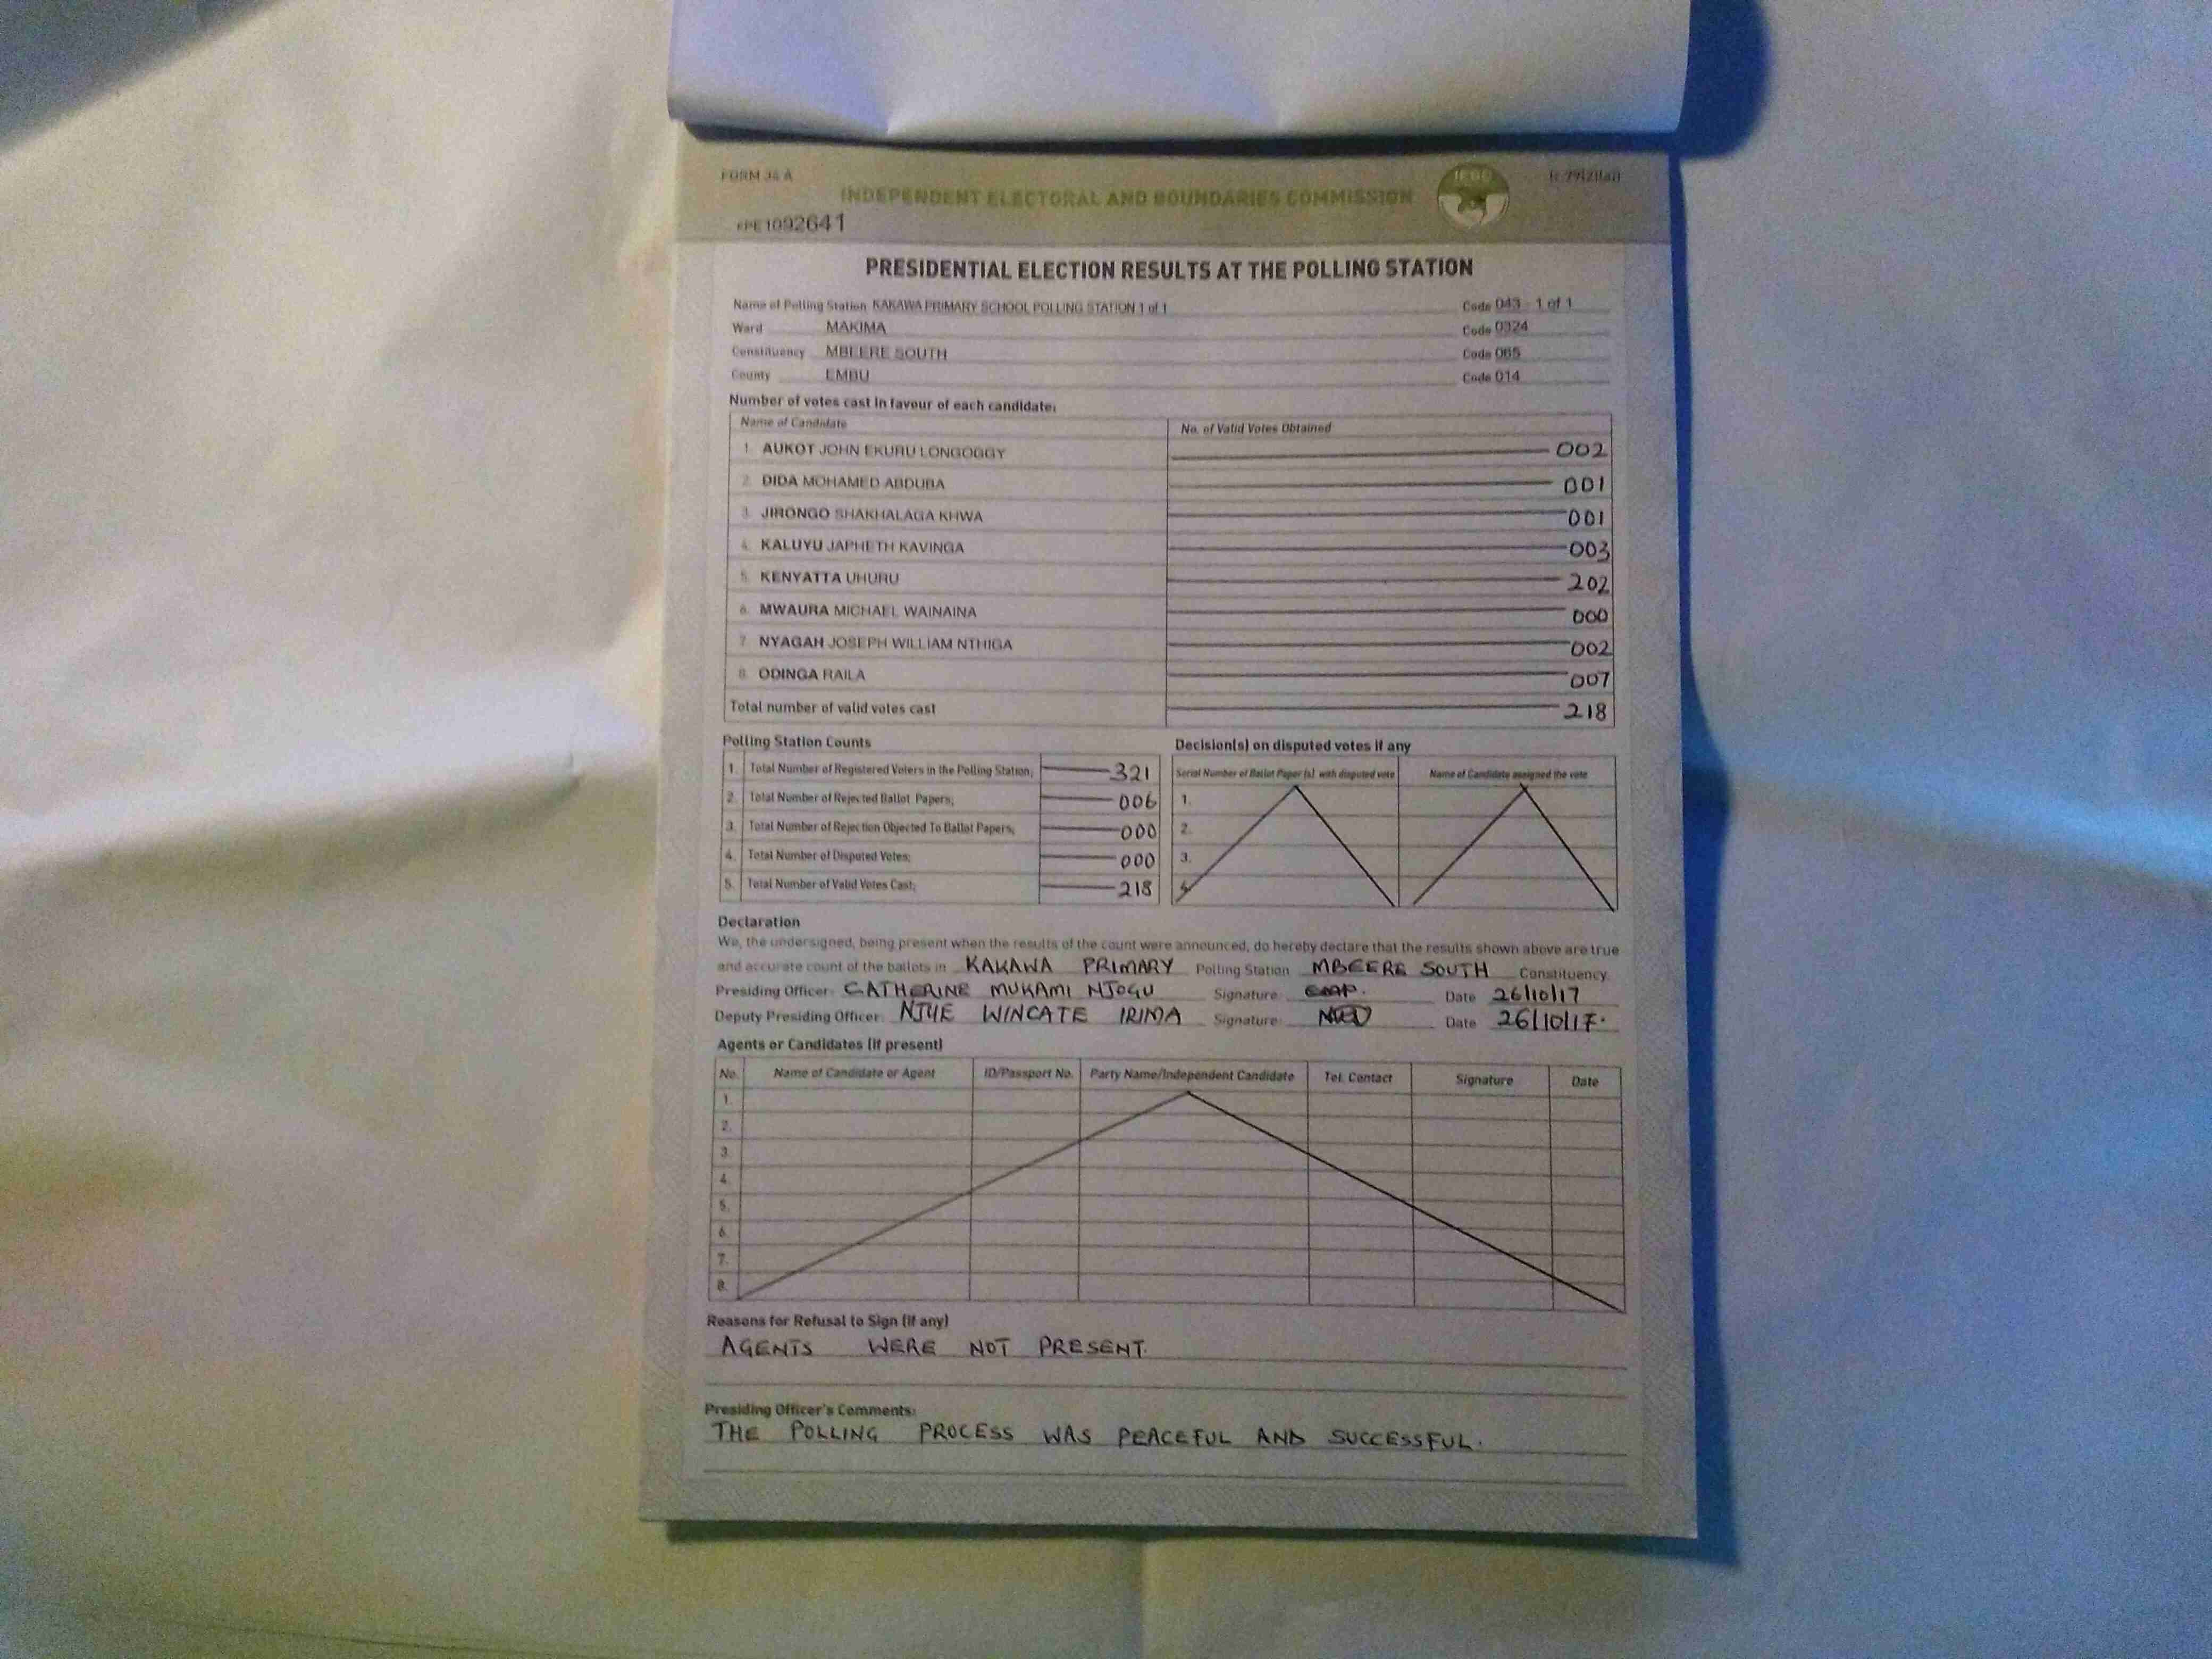 FORM 34 A
R. 79(2)(a)
INDEPENDENT ELECTORAL AND BOUNDARIES COMMISSION
IEBC
1092641
PRESIDENTIAL ELECTION RESULTS AT THE POLLING STATION
Name of Polling Station KAKAWA PRIMARY SCHOOL POLLING STATION 1 of 1 Code 043 - 1 of 1
Ward MAKIMA Code 0324
Constituency MBEERE SOUTH Code 065
County EMBU Code 014
Number of votes cast in favour of each candidate:
Name of Candidate No. of Valid Votes Obtained
1. AUKOT JOHN EKURU LONGOGGY 002
2. DIDA MOHAMED ABDUBA 001
3. JIRONGO SHAKHALAGA KHWA 001
4. KALUYU JAPHETH KAVINGA 003
5. KENYATTA UHURU 202
6. MWAURA MICHAEL WAINAINA 000
7. NYAGAH JOSEPH WILLIAM NTHIGA 002
8. ODINGA RAILA 007
Total number of valid votes cast 218
Polling Station Counts
1. Total Number of Registered Voters in the Polling Station; 321
2. Total Number of Rejected Ballot Papers; 006
3. Total Number of Rejection Objected To Ballot Papers; 000
4. Total Number of Disputed Votes; 000
5. Total Number of Valid Votes Cast; 218
Decision(s) on disputed votes if any
Serial Number of Ballot Paper (s) with disputed vote Name of Candidate assigned the vote
1.
2.
3.
4.
Declaration
We, the undersigned, being present when the results of the count were announced, do hereby declare that the results shown above are true
and accurate count of the ballots in KAKAWA PRIMARY Polling Station MBEERE SOUTH Constituency.
Presiding Officer: CATHERINE MUKAMI NJOGU Signature: Date 26/10/17
Deputy Presiding Officer: NJUE WINCATE IRIMA Signature: Date 26/10/17.
Agents or Candidates (if present)
No. Name of Candidate or Agent ID/Passport No. Party Name/Independent Candidate Tel. Contact Signature Date
1.
2.
3.
4.
5.
6.
7.
8.
Reasons for Refusal to Sign (if any)
AGENTS WERE NOT PRESENT.
Presiding Officer's Comments:
THE POLLING PROCESS WAS PEACEFUL AND SUCCESSFUL.